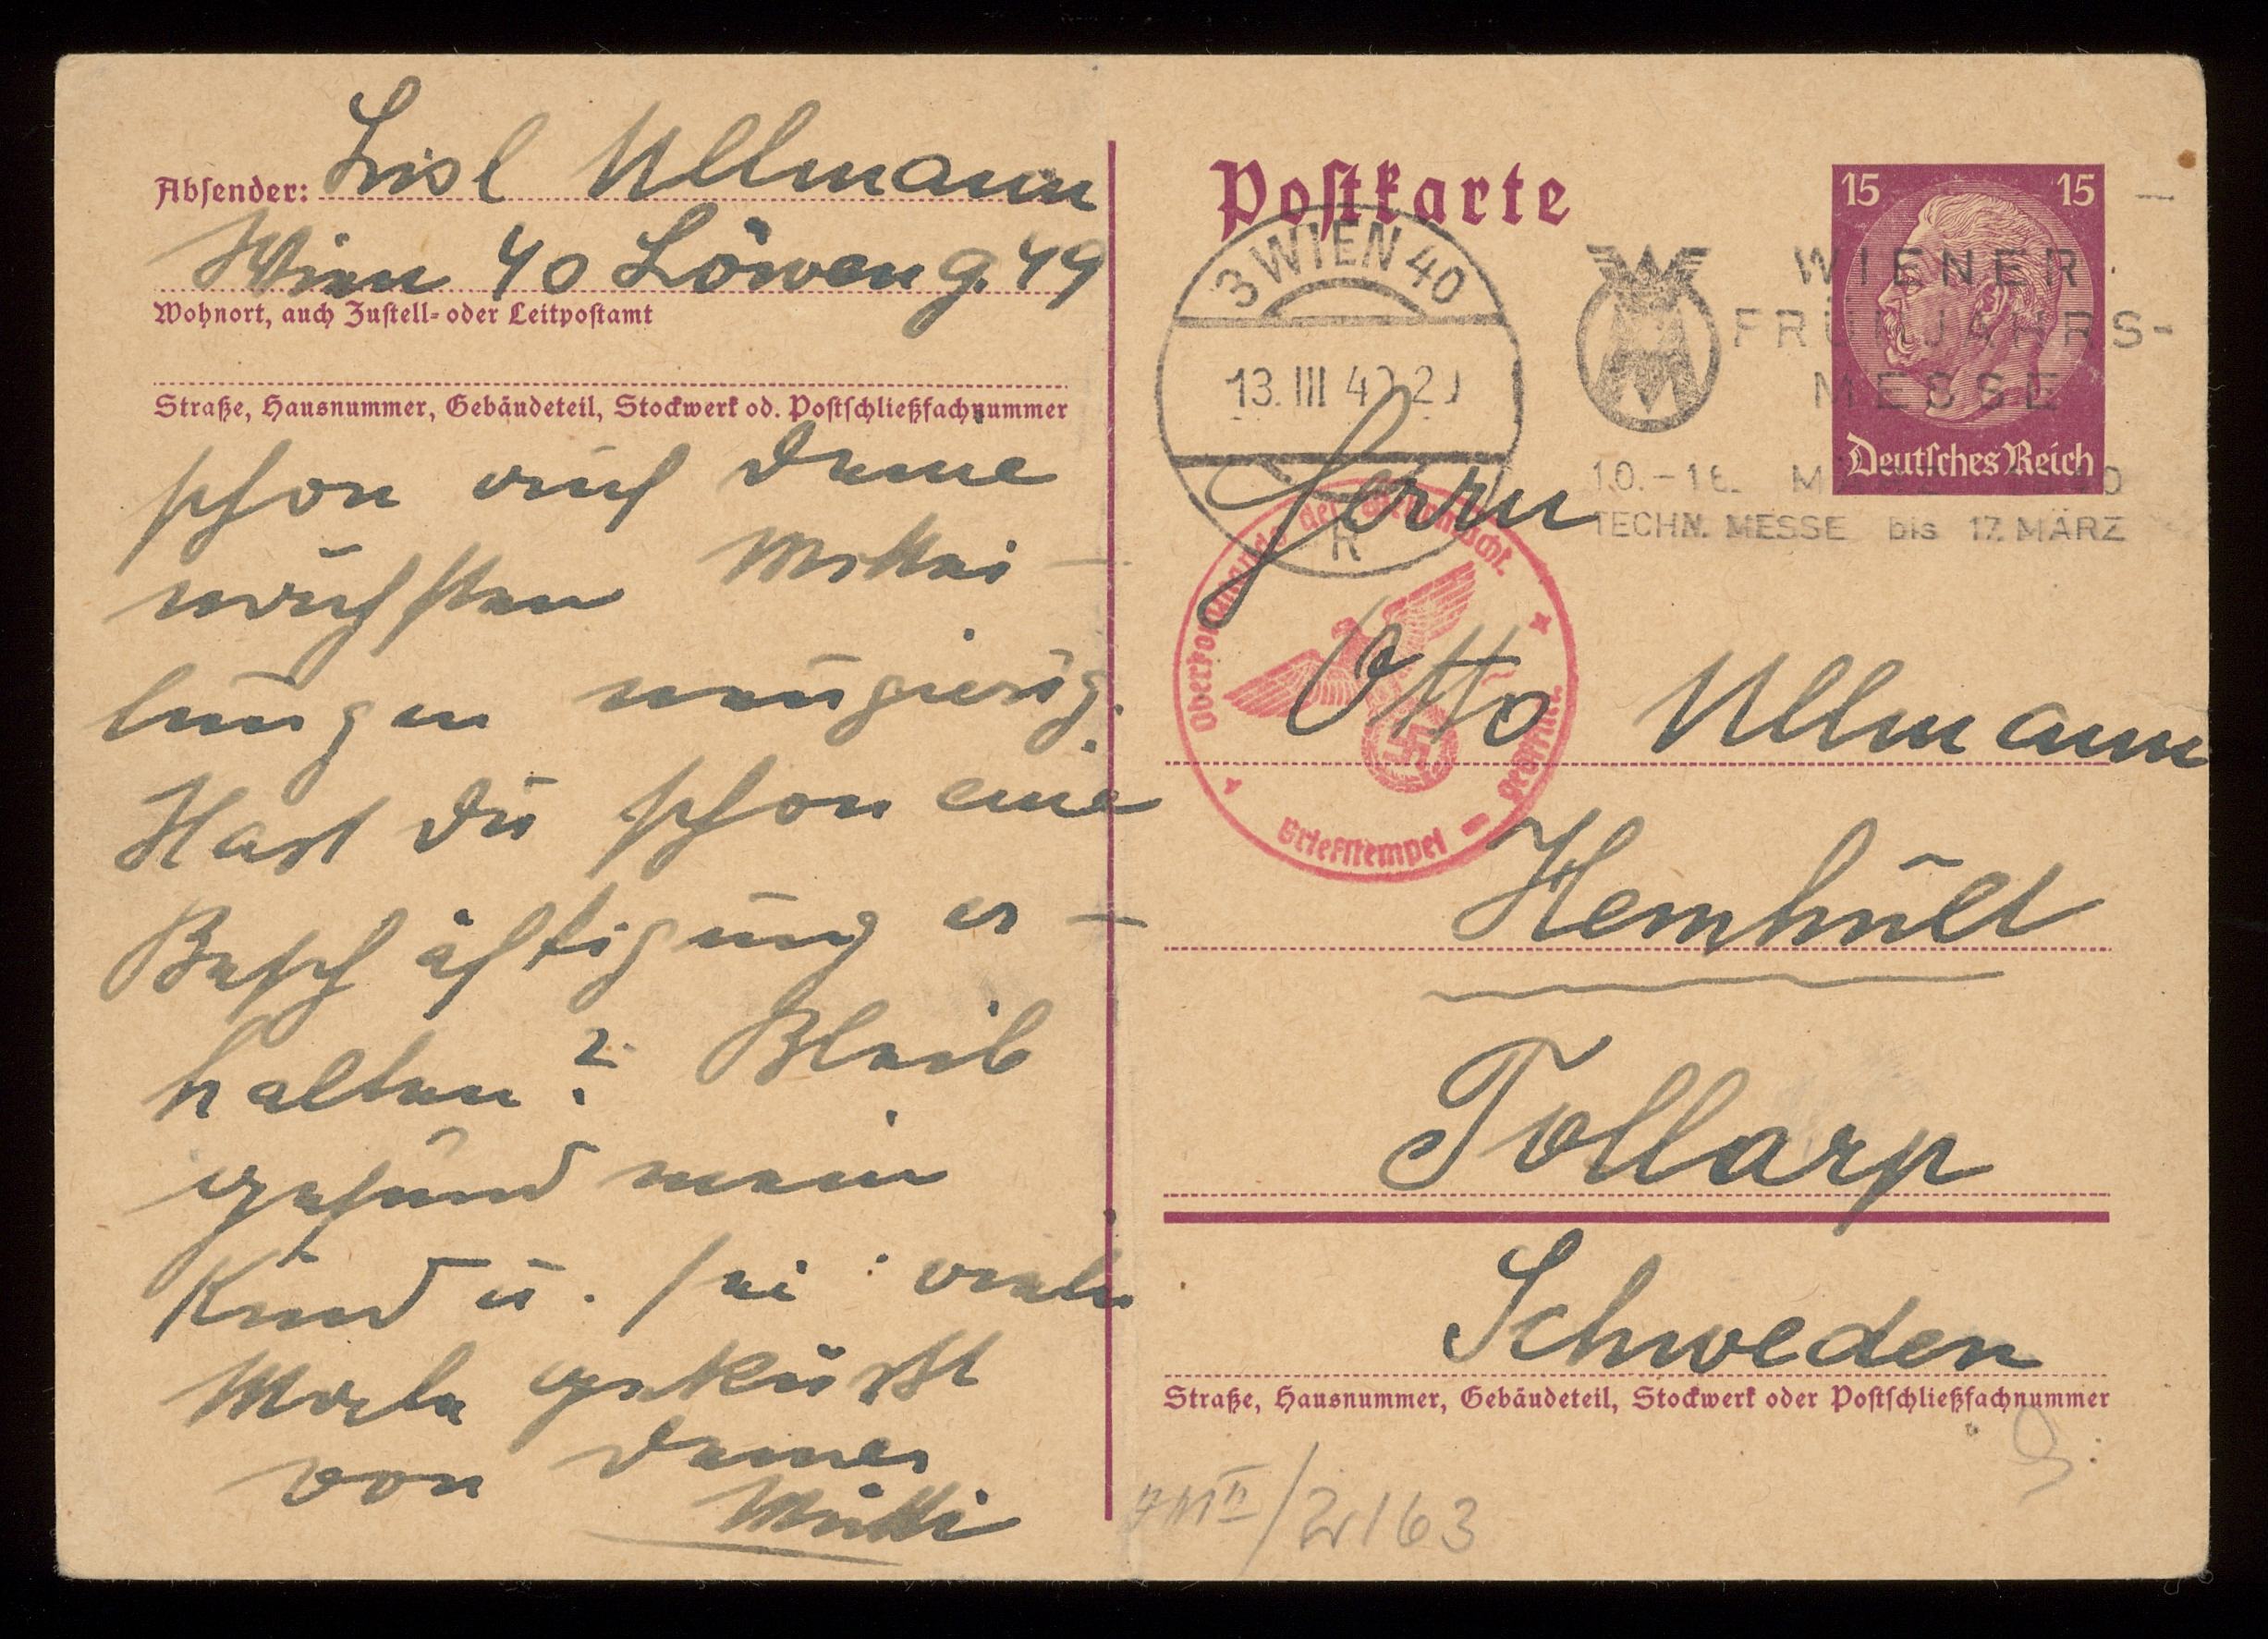 Absender: Lisl Ullmann
Wien 40 Löweng. 49
Wohnort, auch Zustell- oder Leitpostamt
Straße, Hausnummer, Gebäudeteil, Stockwerk od. Postschließfachnummer
schon auf Deine
nächsten Mittei-
lungen neugierig.
Hast Du schon eine
Beschäftigung er-
halten? Bleib
gesund mein
Kind u. sei viele
Male geküsst
von Deiner
Mutti
Postkarte
15 15
Deutsches Reich
3 WIEN 40
13. III 40 20
R
WIENER
FRÜHJAHRS-
MESSE
10.-16. MÄRZ 1940
TECHN. MESSE bis 17. MÄRZ
Oberkommando der Wehrmacht
geprüft
Briefstempel
Herrn
Otto Ullmann
Hemhült
Tollarp
Schweden
Straße, Hausnummer, Gebäudeteil, Stockwerk oder Postschließfachnummer
/2163